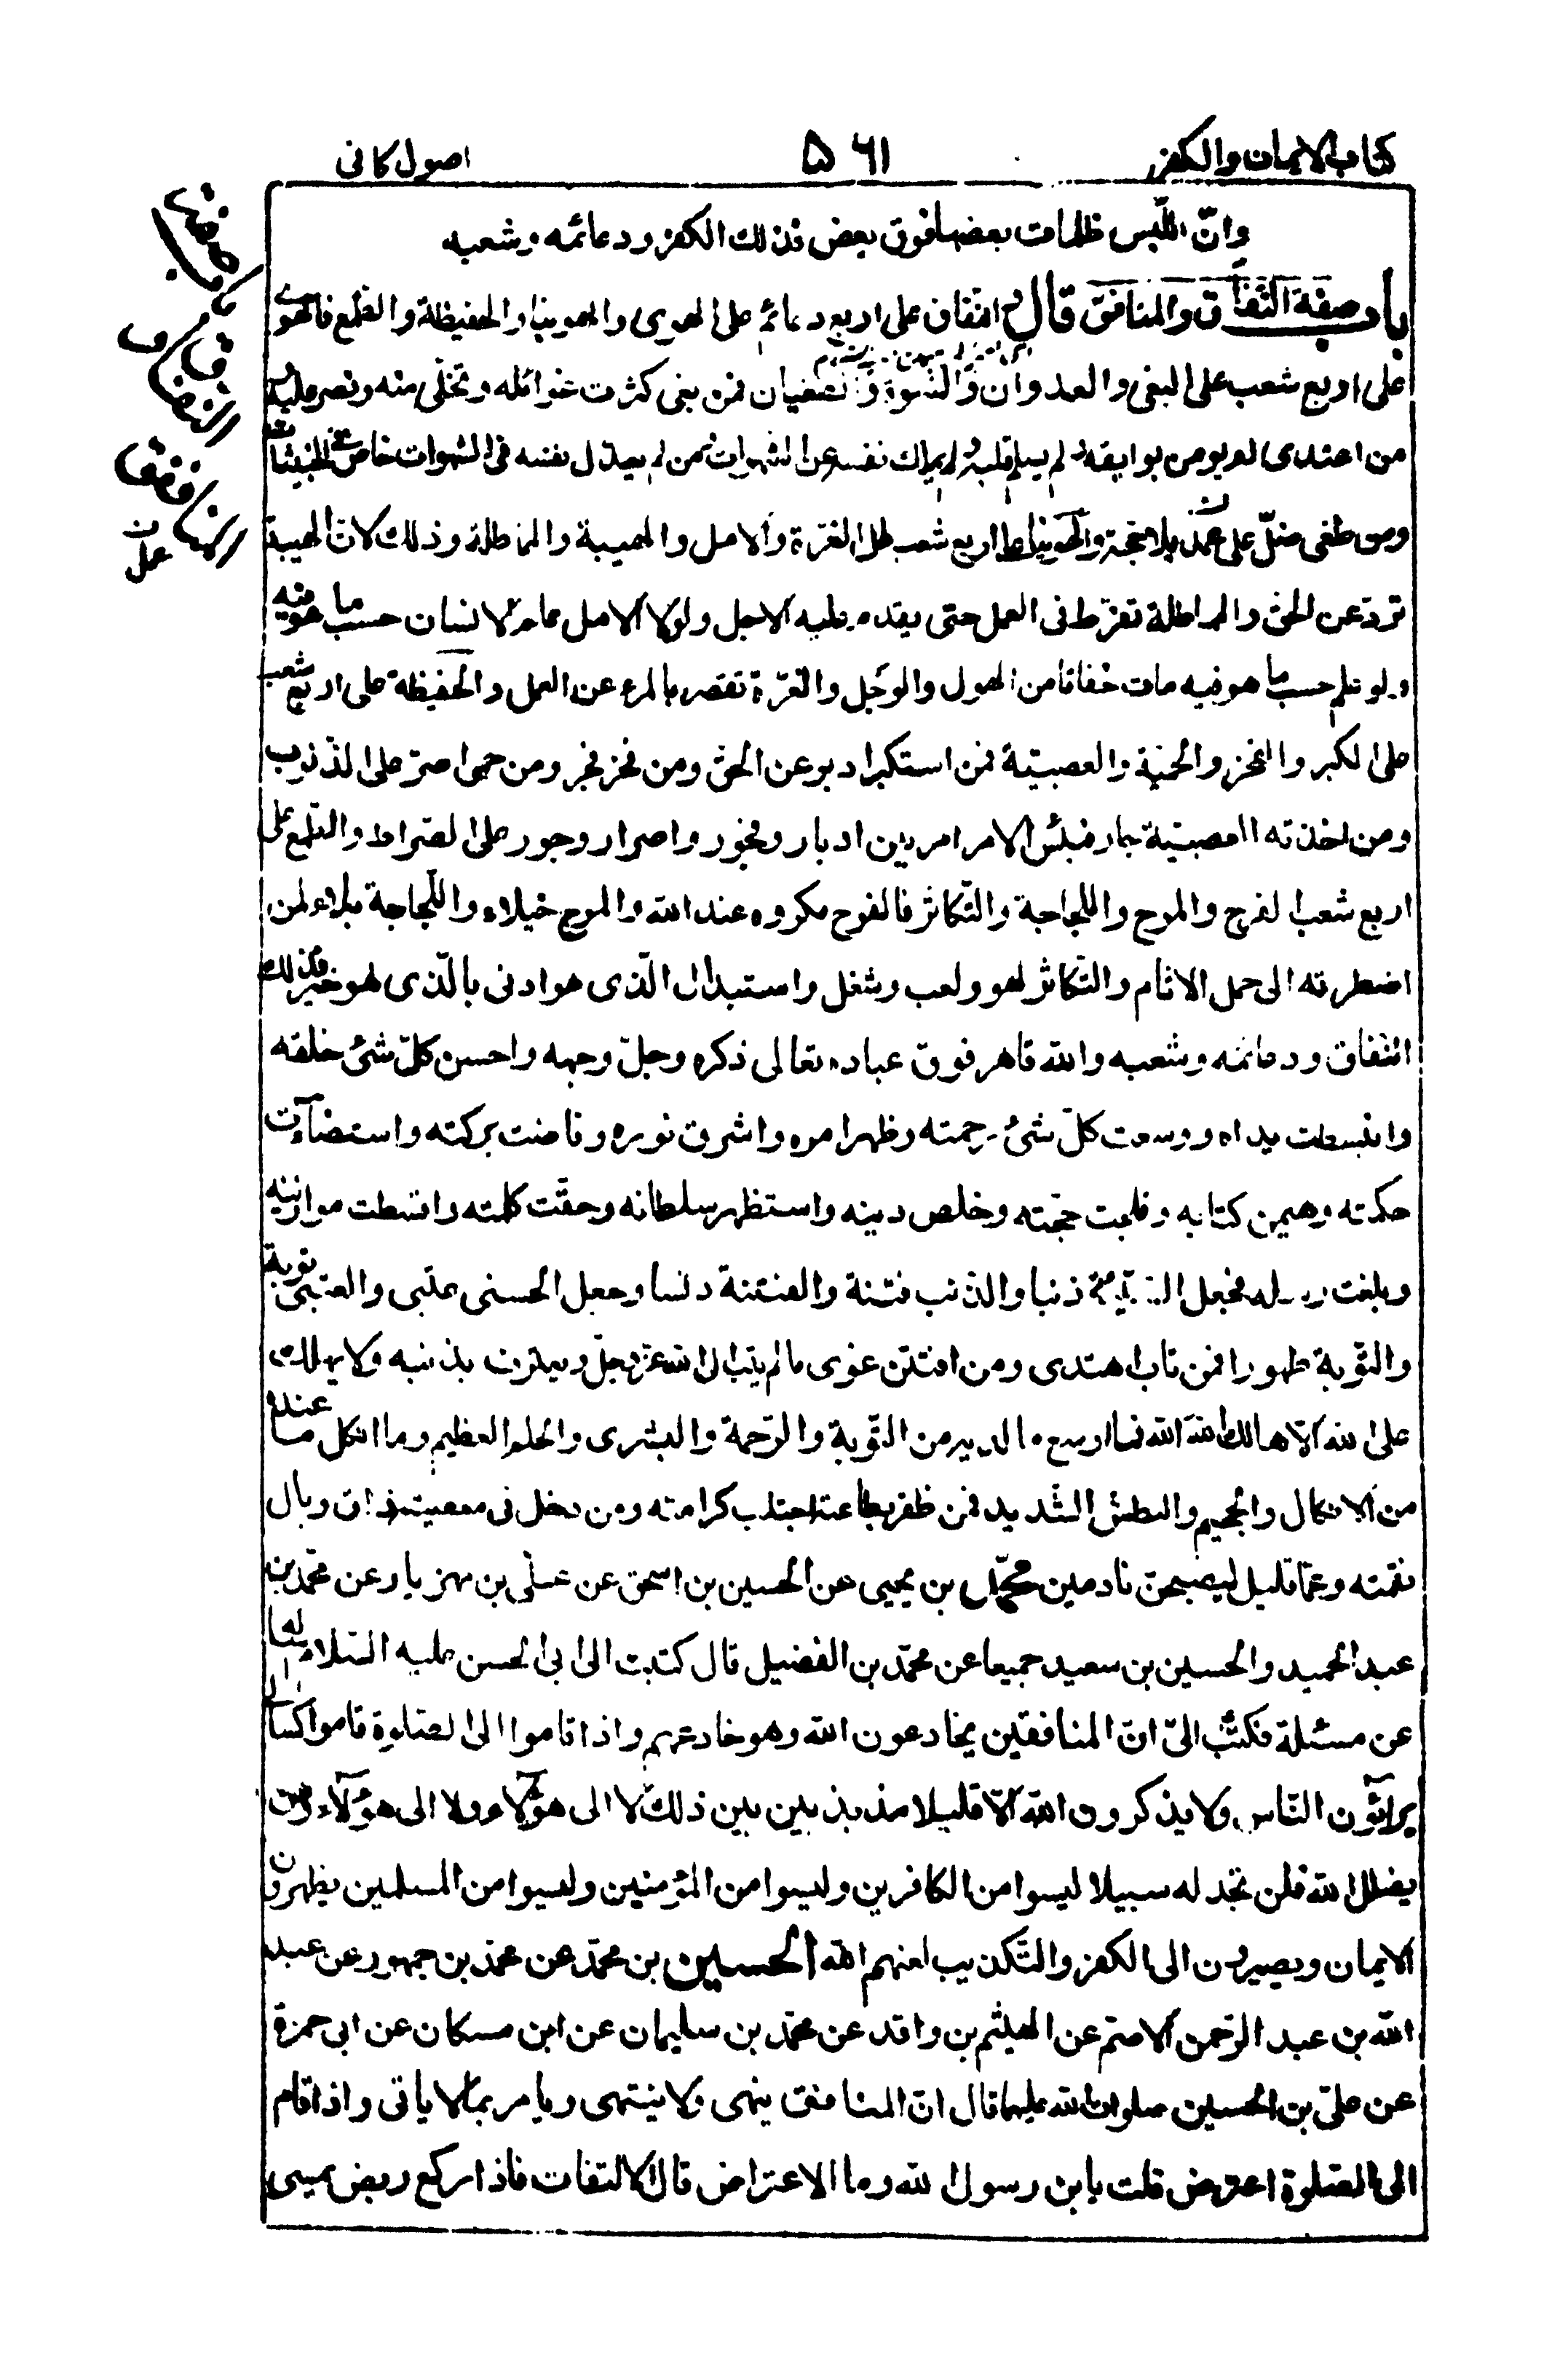 كتاب الايمان والكفر
۵۶۱
اصول كافى
وانّ اللّبس ظلمات بعضها فوق بعض فذلك الكفر ودعائمه وشعبه
باب صفة النّفاق والمنافق قال والنفاق على اربع دعائم على الهوى والهوينا والحفيظة والطمع فالهوى
على اربع شعب على البغى والعدوان والشهوة والطغيان فمن بغى كثرت غوائله وتخلّى منه ونصر عليه
من اعتدى لم يؤمن بوايقه ولم يسلم قلبه ولم يملك نفسه عن الشهوات ومن لم يعذل نفسه فى الشهوات خاض فى الخبيثات
ومن طغى ضلّ على عمد بلا حجة والهوينا على اربع شعب على الغرّة والامل والهيبة والمماطلة وذلك لانّ الهيبة
تردّ عن الحق والمماطلة تفرّط فى العمل حتى يقدم عليه الاجل ولولا الامل علم الانسان حسب ما هو فيه
ولو علم حسب ما هو فيه مات خفاتا من الهول والوجل والغرّة تقصر بالمرء عن العمل والحفيظة على اربع شعب
على الكبر والفخر والحميّة والعصبيّة فمن استكبر ادبر عن الحق ومن فخر فجر ومن حمى اصرّ على الذنوب
ومن اخذته العصبيّة جار فبئس الامر امر بين ادبار وفجور واصرار وجور على الصراط والطمع على
اربع شعب الفرح والمرح واللجاجة والتّكاثر فالفرح مكروه عند الله والمرح خيلاء واللّجاجة بلاء لمن
اضطرته الى حمل الاثام والتّكاثر لهو ولعب وشغل واستبدال الّذى هو ادنى بالّذى هو خير فذلك
النّفاق ودعائمه وشعبه والله قاهر فوق عباده تعالى ذكره وجلّ وجهه واحسن كلّ شئ خلقه
وانبسطت يداه ووسعت كلّ شئ رحمته وظهر امره واشرق نوره وفاضت بركته واستضاءت
حكمته وهيمن كتابه وفلجت حجّته وخلص دينه واستظهر سلطانه وحقّت كلمته واقسطت موازينه
وبلغت رسله فجعل السّيّئة ذنبا والذنب فتنة والفتنة دنسا وجعل الحسنى عتبى والعتبى توبة
والتّوبة طهورا فمن تاب اهتدى ومن افتتن غوى ما لم يتب الى الله عزّوجلّ ويعترف بذنبه ولا يهلك
على الله الّا هالك الله الله فما اوسع ما لديه من التّوبة والرّحمة والبشرى والحلم العظيم وما انكل ما عنده
من الانكال والجحيم والبطش الشّديد فمن ظفر بطاعته اجتلب كرامته ومن دخل فى معصيته ذاق وبال
نقمته وعمّا قليل ليصبحنّ نادمين محمّد بن يحيى عن الحسين بن اسحق عن علىّ بن مهزيار عن محمّد بن
عبد الحميد والحسين بن سعيد جميعا عن محمّد بن الفضيل قال كتبت الى ابى الحسن عليه السّلام اسئله
عن مسئلة فكتب الىّ انّ المنافقين يخادعون الله وهو خادعهم واذا قاموا الى الصّلوة قاموا كسالى
يراؤن النّاس ولا يذكرون الله الّا قليلا مذبذبين بين ذلك لا الى هؤلاء ولا الى هؤلاء ومن
يضلل الله فلن تجد له سبيلا ليسوا من الكافرين وليسوا من المؤمنين وليسوا من المسلمين يظهرون
الايمان ويصيرون الى الكفر والتّكذيب لعنهم الله الحسين بن محمّد عن محمّد بن جمهور عن عبد
الله بن عبد الرّحمن الاصمّ عن الهيثم بن واقد عن محمّد بن سليمان عن ابن مسكان عن ابى حمزة
عن علىّ بن الحسين صلوات الله عليهما قال انّ المنافق ينهى ولا ينتهى ويأمر بما لا ياتى واذا قام
الى الصّلوة اعترض قلت يا بن رسول الله وما الاعتراض قال الالتفات فاذا ركع ربض يمسى